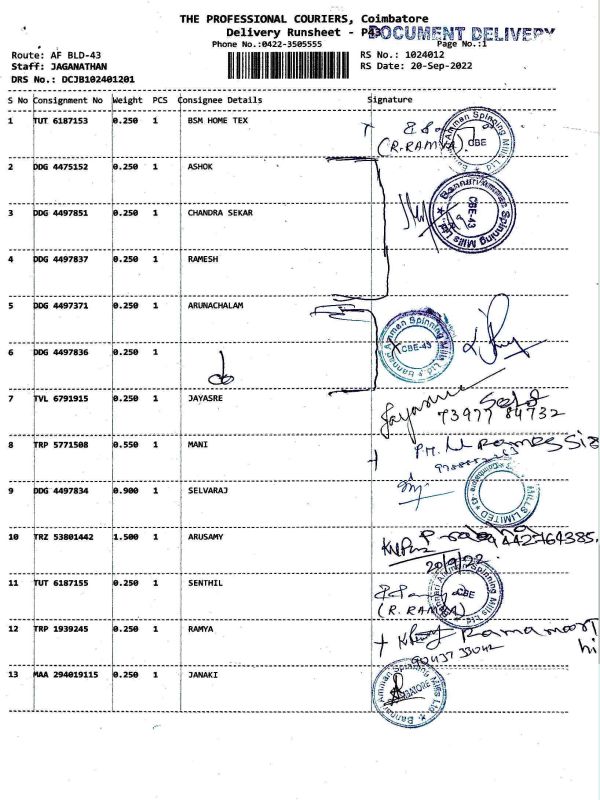 THE PROFESSIONAL COURIERS, Coimbatore
Delivery Runsheet - P43
DOCUMENT DELIVERY
Phone No.:0422-3505555
Page No.:1
Route: AF BLD-43
RS No.: 1024012
Staff: JAGANATHAN
RS Date: 20-Sep-2022
DRS No.: DCJB102401201
S No Consignment No Weight PCS Consignee Details Signature
1 TUT 6187153 0.250 1 BSM HOME TEX
(R.RAMYA)
Bannari Amman Spinning Mills Ltd. CBE
2 DDG 4475152 0.250 1 ASHOK
Bannari Amman Spinning Mills Ltd. CBE-43
3 DDG 4497851 0.250 1 CHANDRA SEKAR
4 DDG 4497837 0.250 1 RAMESH
5 DDG 4497371 0.250 1 ARUNACHALAM
Bannari Amman Spinning Mills Ltd. CBE-43
6 DDG 4497836 0.250 1
7 TVL 6791915 0.250 1 JAYASRE
Jayasree
73977 84732
8 TRP 5771508 0.550 1 MANI
9 DDG 4497834 0.900 1 SELVARAJ
MILLS LIMITED
10 TRZ 53801442 1.500 1 ARUSAMY
9442764385.
20/9/22
11 TUT 6187155 0.250 1 SENTHIL
(R.RAMYA)
Bannari Amman Spinning Mills Ltd. CBE
12 TRP 1939245 0.250 1 RAMYA
Ramamoorthi
13 MAA 294019115 0.250 1 JANAKI
Bannari Amman Spinning Mills Ltd.